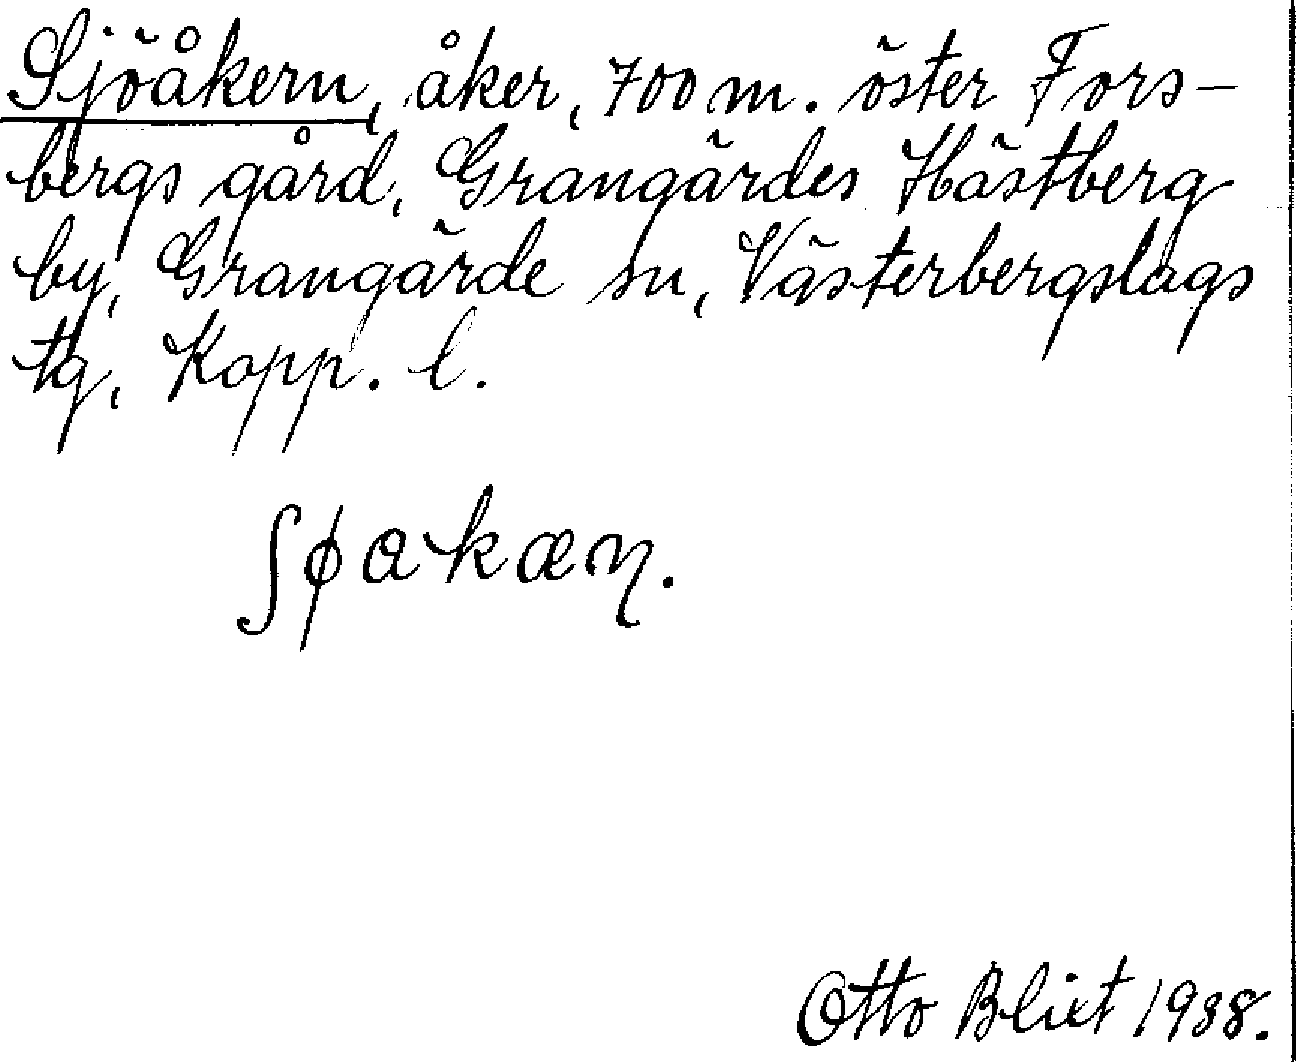 Sjöåkern, åker, 700 m. öster Fors-
bergs gård, Grangärdes Hästberg
by, Grangärde sn, Västerbergslags
tg, Kopp. l.
ʃɸakæꞃ.
Otto Blixt 1938.